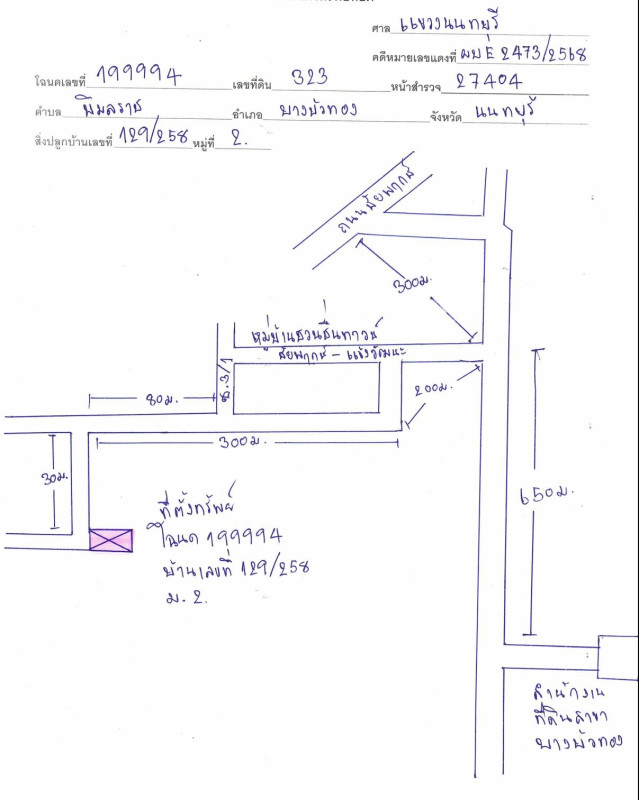 ศาล แขวงนนทบุรี
คดีหมายเลขแดงที่ ผบE 2473/2568
โฉนดเลขที่ 199994 เลขที่ดิน 323 หน้าสำรวจ 27404
ตำบล พิมลราช อำเภอ บางบัวทอง จังหวัด นนทบุรี
สิ่งปลูกบ้านเลขที่ 129/258 หมู่ที่ 2.
ถนนชัยพฤกษ์
300ม.
หมู่บ้านชวนชื่นทาวน์
ชัยพฤกษ์ - แจ้งวัฒนะ
ซ.3/1
80ม.
200ม.
300ม.
30ม.
650ม.
ที่ตั้งทรัพย์
โฉนด 199994
บ้านเลขที่ 129/258
ม. 2.
สำนักงาน
ที่ดินสาขา
บางบัวทอง